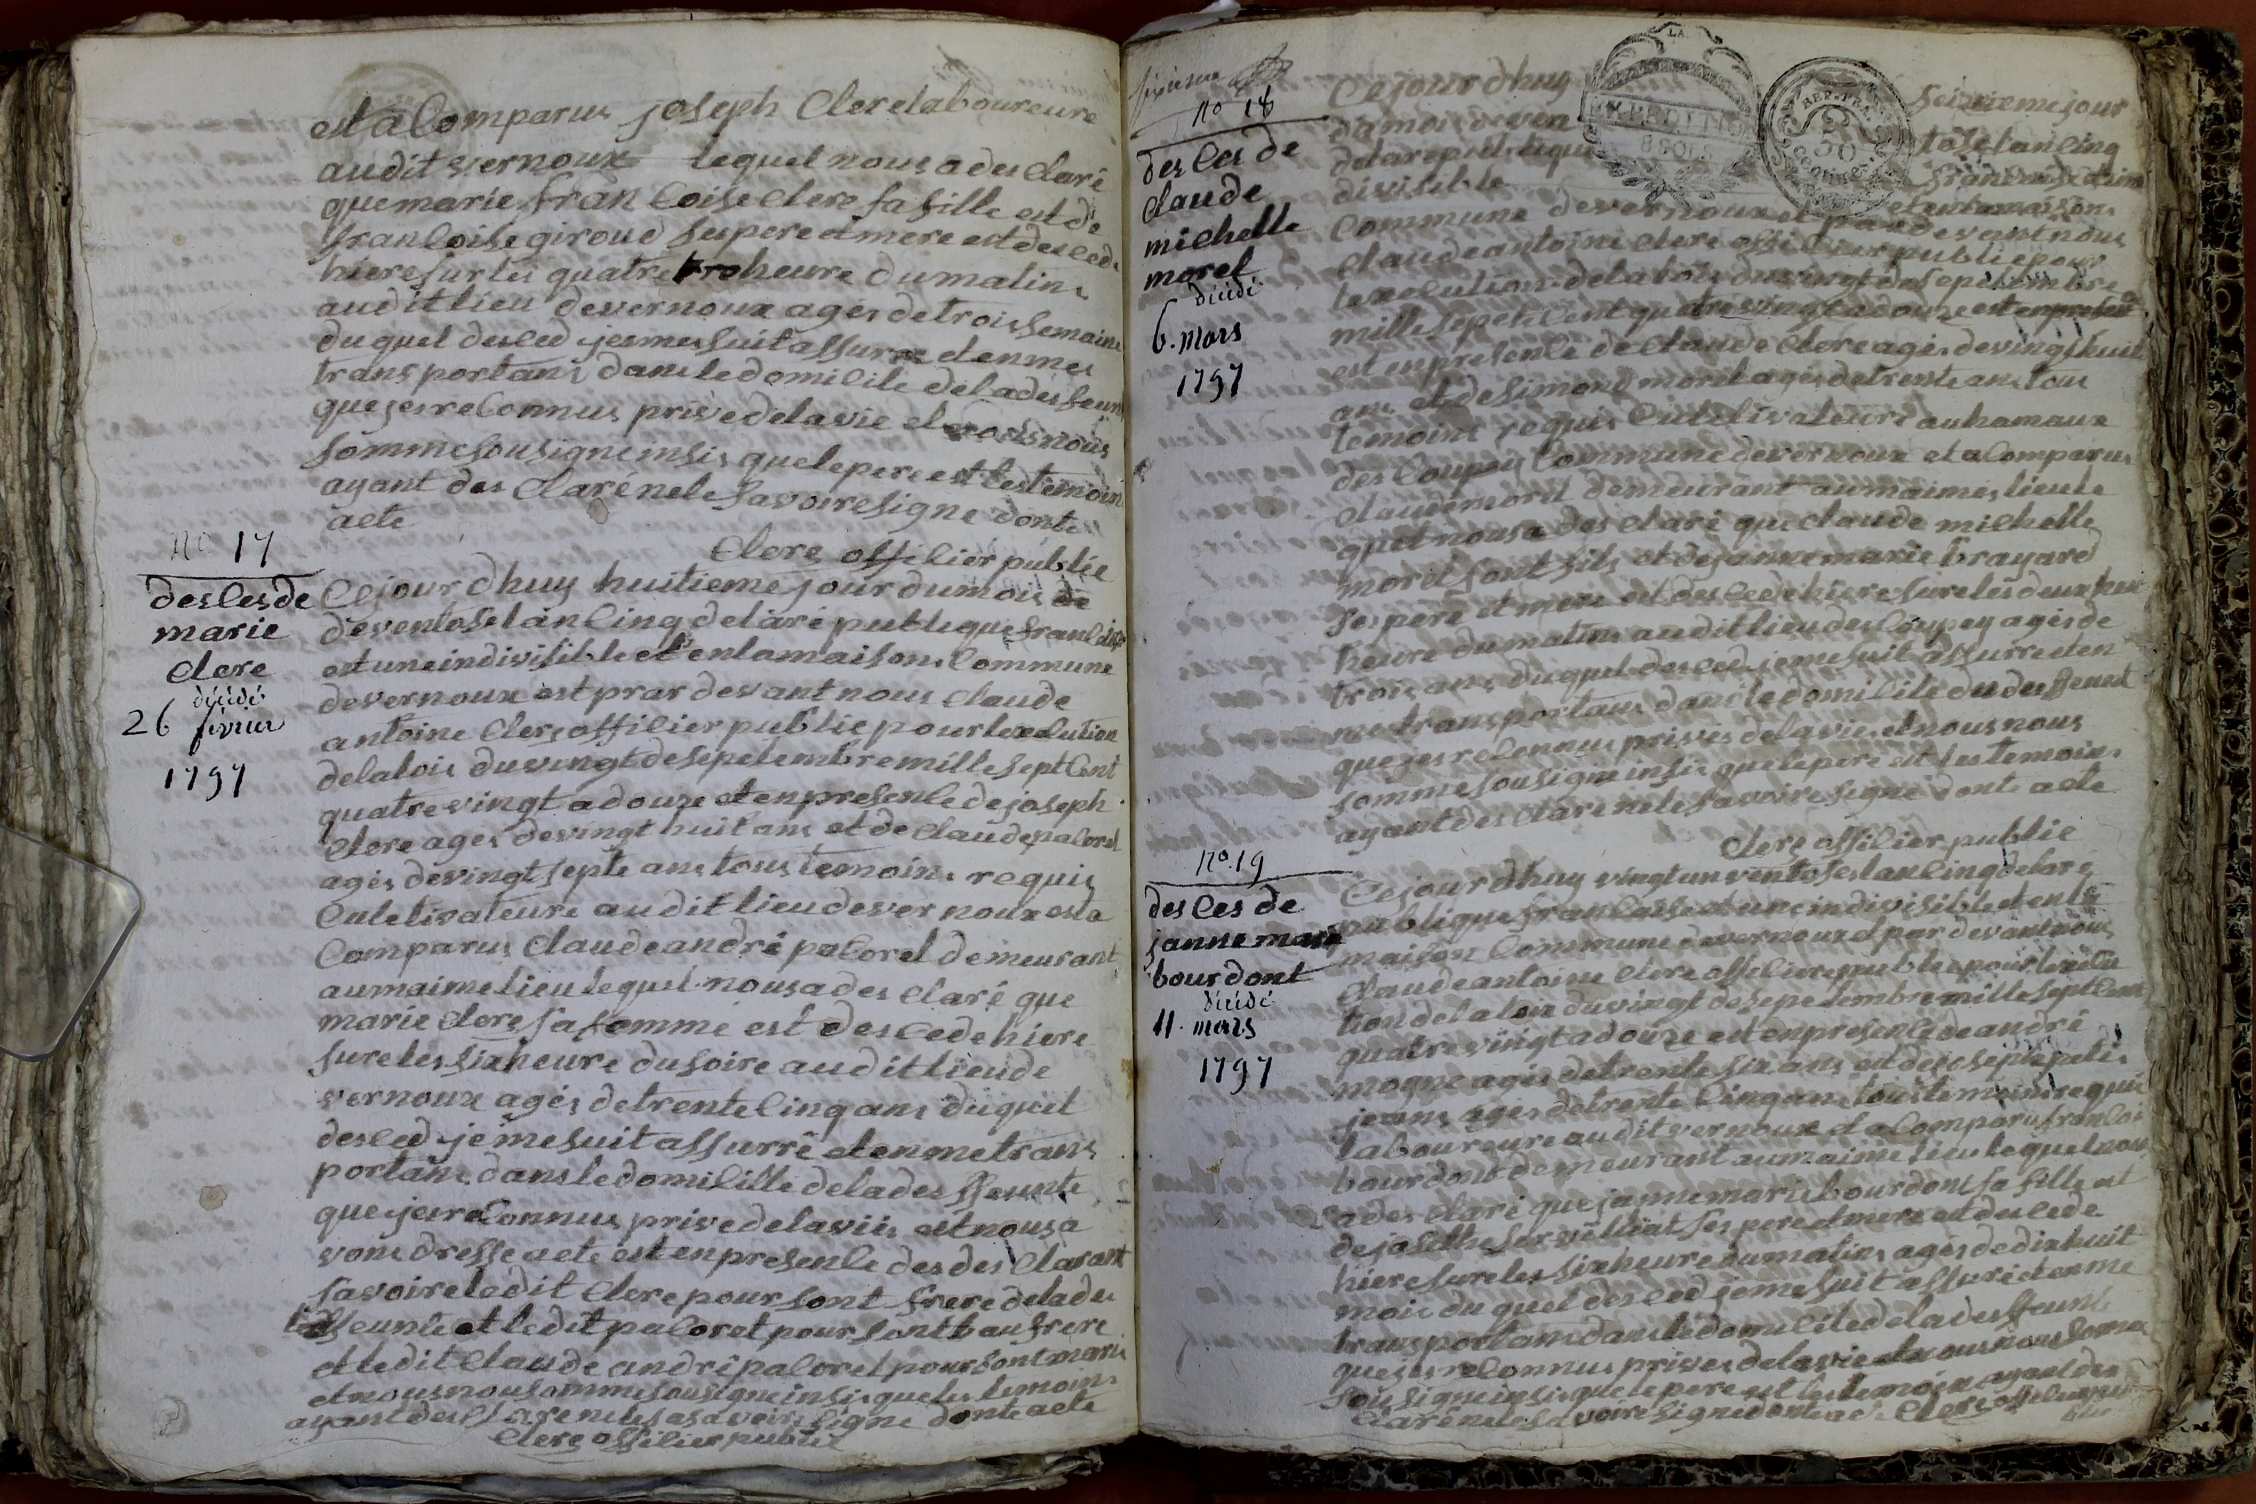 et a Comparus joseph Clere laboureure
audit vernoux lequel nous a des Claré
que marie fran Coise Clere sa fille et de
francoise giroud ses pere et mere est desced
hiere sur les quatre heure du matin
audit lieu de vernoux agés de trois semaine
du quel desced je me suit assurre et en me
transportans dans le domicile de la desfeunt
que jes reconnus privé de la vie et nous nous
somme sousigne insis que le pere et les temoin
ayant des Claré ne le savoire signe donte
acte
Clere offisier publie
no 17
desces de
marie
Clere
décédé
26 février
1797
Ce jour d huy huitieme jour du mois de
de ventose l an Cinq de la re publique francoise
et une indivisible et en la maison Commune
de vernoux est prar devant nous Claude
antoine Clere offisier publie pour lexecution
de la lois du vingt de sepetembre mille sept Cent
quatre vingt a douze et en presence de joseph
Clere agés de vingt huit ans et de Claude palorel
agés de vingt septe ans tous temoins requis
Cultivateure au dit lieu de ver noux est a
Comparus Claude andré palorel demeurant
au maime lieu lequel nous a des Claré que
marie Clere sa famme est descede hiere
sure les six heure du soire au dit lieu de
vernoux agés de trente Cinq ans du quel
desced je me suit assurré et en me trans
portans dans le domicille de la des ffeunte
que je reconnus prive de la viis et nous a
vons dresse acte est en presence des des Clarant
savoire le dit Clere pour sont frere de la des
ffeunte et le dit palorel pour sont bau frere
et le dit Claude andré palorel pour sont maris
et nous nous somme sousigne insis que les temoins
ayant des Claré ne les a savoire signe donte acte
Clere offisier publie
sixieme
no 18
des Ces de
Claude
michelle
morel
décédé
6. mars
1797
Ce jour d huy seizieme jour
du mois de ven tose l an Cinq
de la republique francaise
divisible et en la maison
Commune de vernoux et par devant nous
Claude antoine Clere offisier publie pour
lexecution de la lois du vingt de sepetembre
mille sepete Cent quatre vingt a douze est en presence
est en presence de Claude Clere agés de vingt huit
ans et de simond morel agés de trente ans tous
temoins requis Cutelivateure au hamaux
des Coupey Commune de vernoux et a Comparus
Claude morel demeurant au maimes lieu le
quel nous a des Claré que Claude michelle
morel sont fils et de janne marie brayard
ses pere et mere est desced hiere sure les deux
heure du matin audit lieu des Coupey agés de
trois ans du quel desced je me suit assurre et en
me transportans dans le domicile du des ffeunt
que jes reconnus privés de la vie et nous nous
somme sousigne insis que le pere et les temoins
ayant des Claré ne le savoire signe donte acte
Clere offisier publie
no. 19
des Ces de
janne marie
bourdont
décédé
11. mars
1797
Ce jour d huy vingt un ventose l an Cinq de la re
publique francoise et une indivisible et en la
maison Commune de vernoux et par devant nous
Claude antoine Clere offisiere publie pour lexecu
tion de la loix du vingt de sepetembre mille sept Cent
quatre vingt a douze est en presence de andré
mogne agés de trente six ans et de joseph petit
jeans agés de trente Cinq ans tous temoins requis
laboureure audit vernoux et a Comparu francois
bourdont demeurant au maime lieu lequel nous
a des Claré que janne marie bourdont sa fille et
ses pere et mere est descede
hiere sure les six heure du matins agés de dix huit
mois du quel desced je me suit assuré et en me
transportans dans le domicile de la des ffeunte
que jes reconnus privés de la vie et nous nous somme
sousigne insis que le pere et les temoins ayant des
Claré ne le savoire signe donte acte Clere offisier
publie